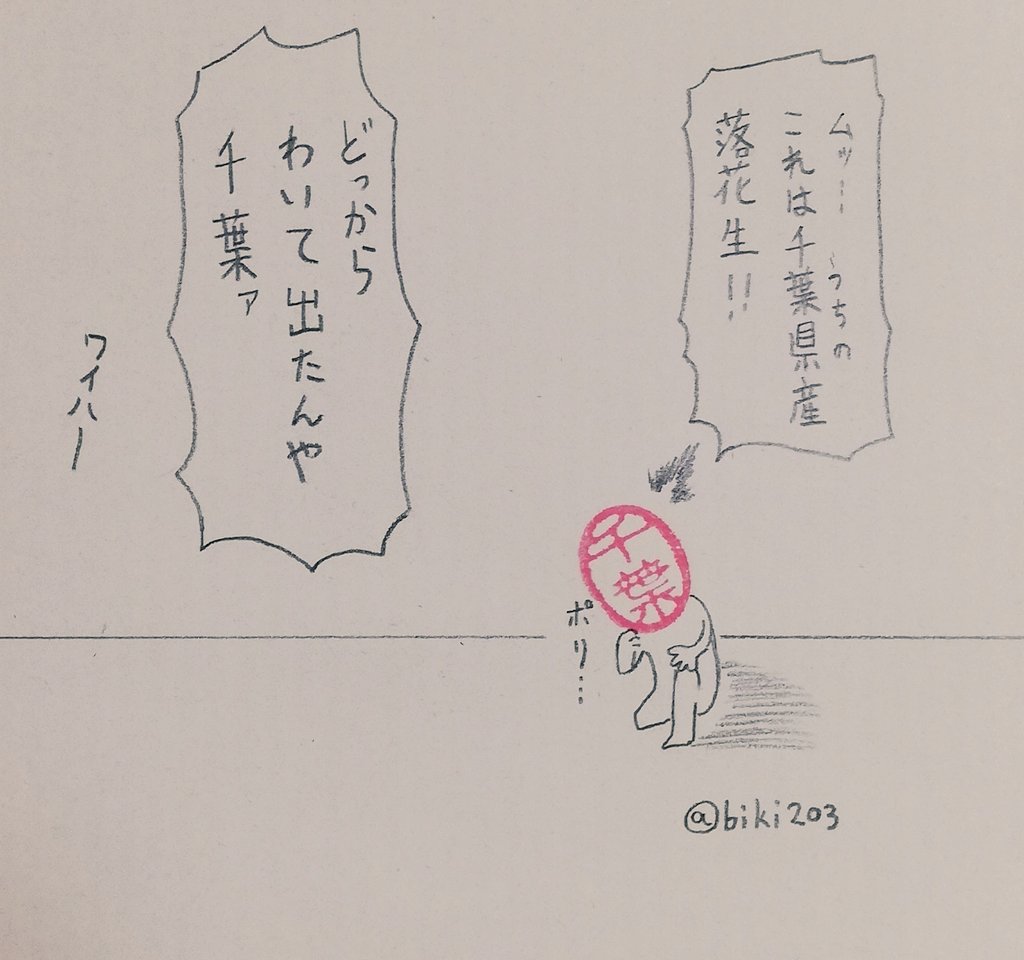 ムッ… うちの
これは千葉県産
落花生!!
千葉
ポリ…
どっから
わいて出たんや
千葉ァ
ワイハー
@biki203